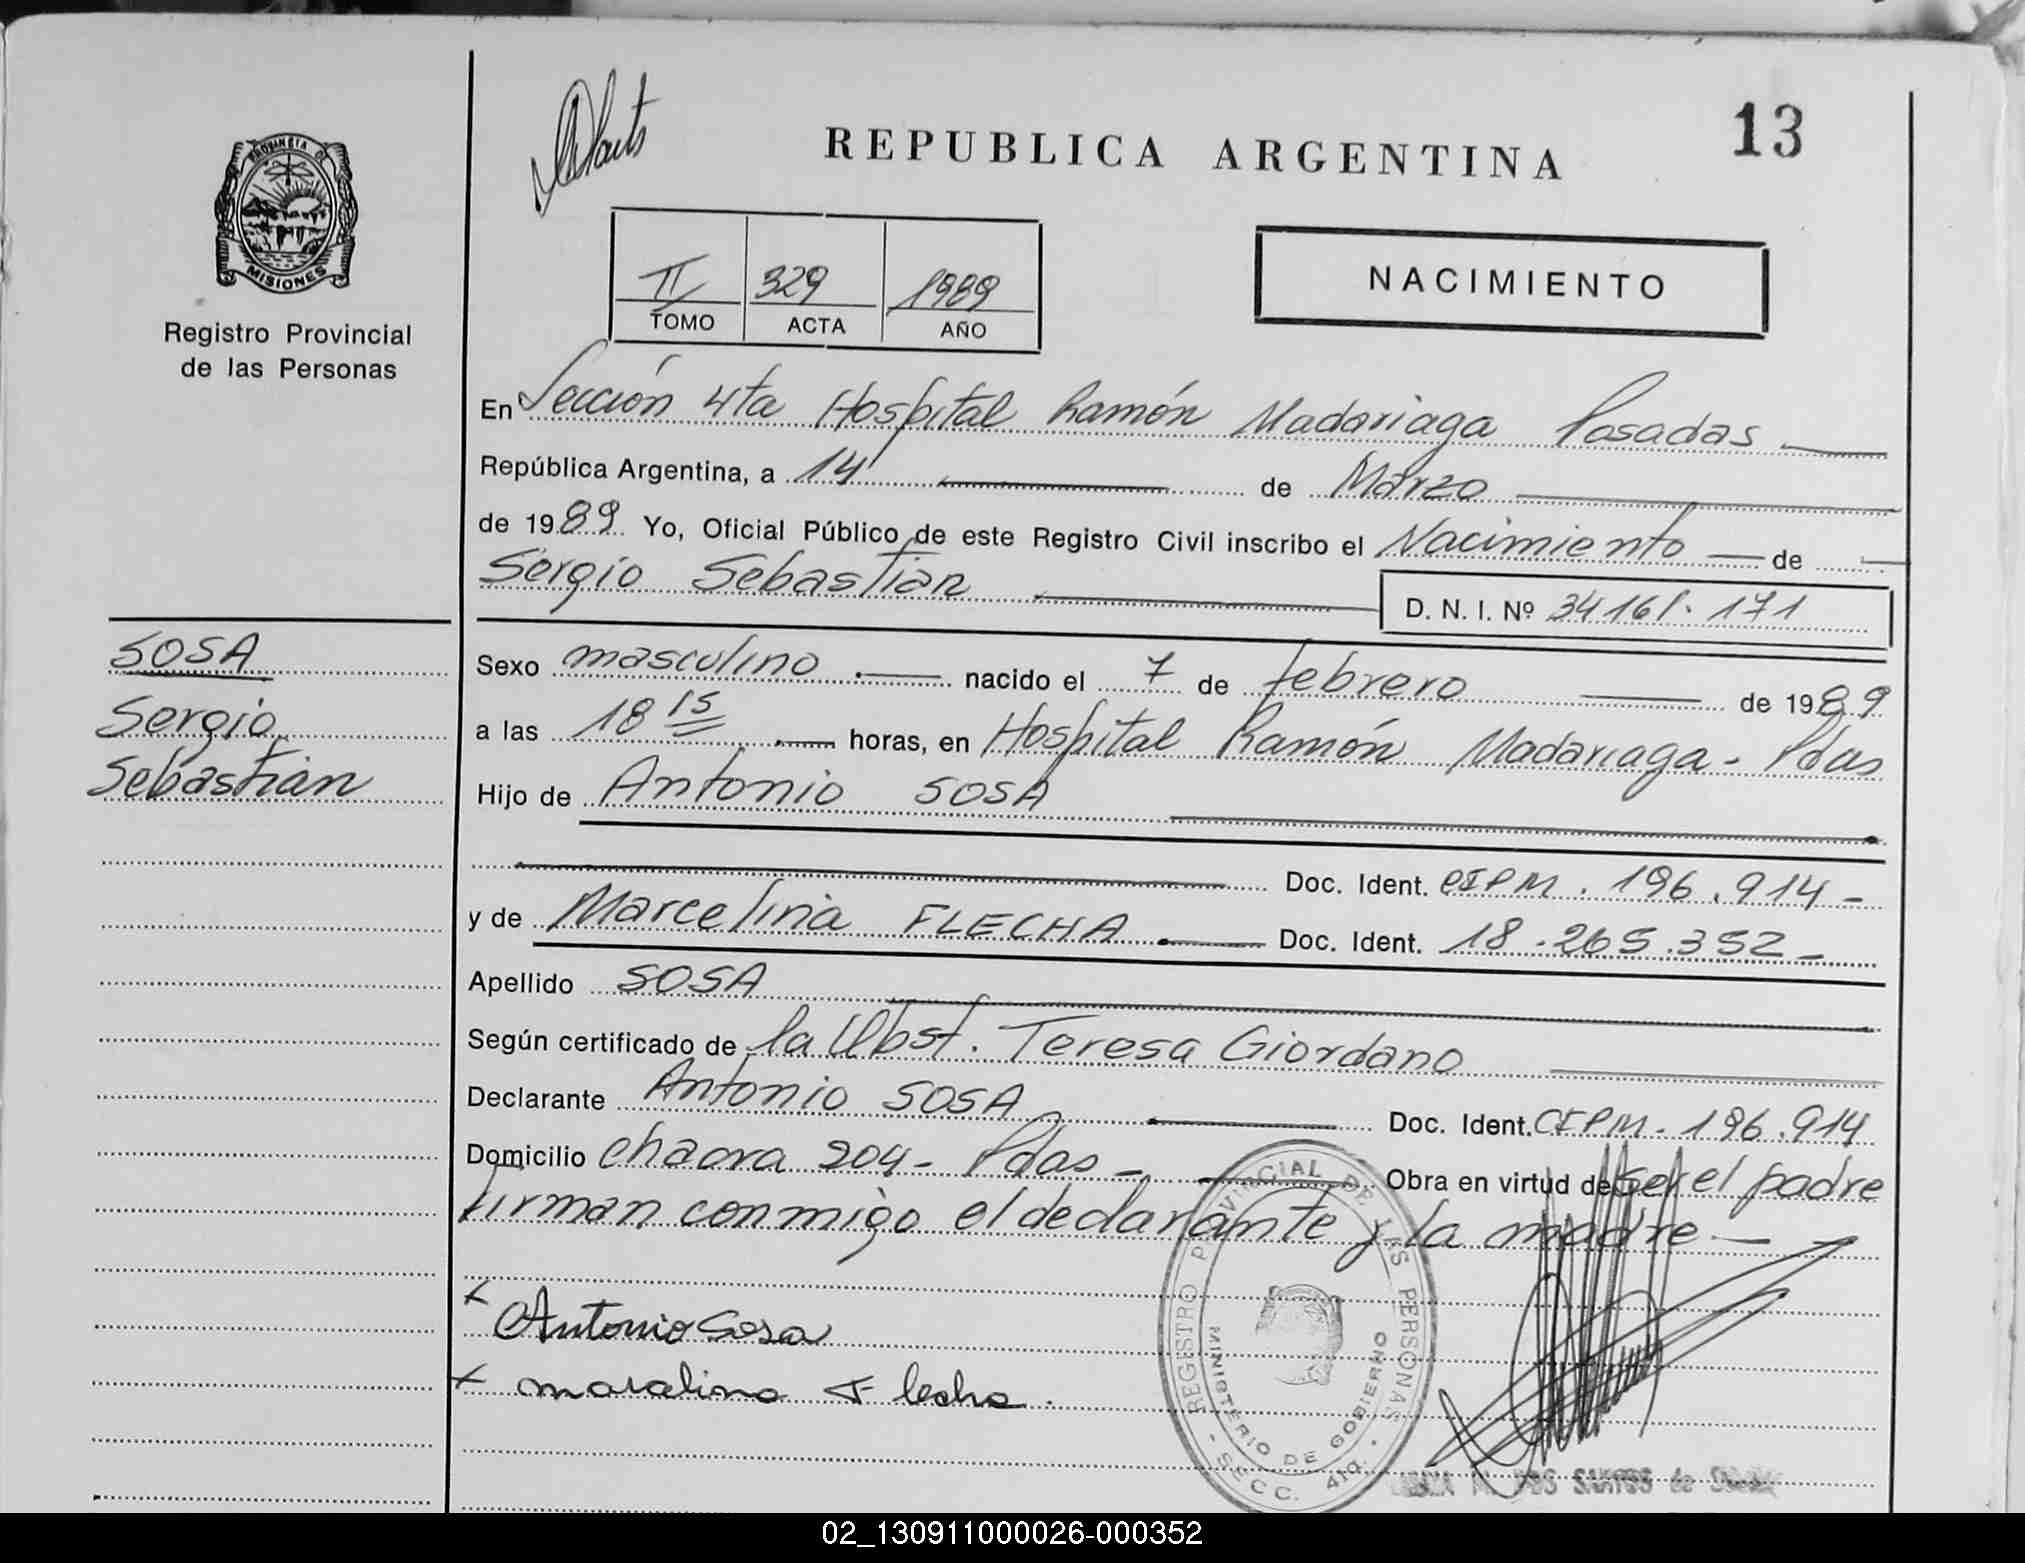 13
REPUBLICA ARGENTINA
PROVINCIA D
MISIONES
Registro Provincial
de las Personas
II 329 1989
TOMO ACTA AÑO
NACIMIENTO
En Sección 4ta Hospital Ramón Madariaga Posadas
República Argentina, a 14 de Marzo
de 1989 Yo, Oficial Público de este Registro Civil inscribo el Nacimiento de
Sergio Sebastián
D. N. I. Nº 34161.171
SOSA
Sergio
Sebastián
Sexo masculino nacido el 7 de febrero de 1989
a las 18 15 horas, en Hospital Ramón Madariaga - Pdas
Hijo de Antonio SOSA
Doc. Ident. CIPM. 196.914-
y de Marcelina FLECHA Doc. Ident. 18.265.352-
Apellido SOSA
Según certificado de la Obst. Teresa Giordano
Declarante Antonio SOSA Doc. Ident. CIPM. 196.914
Domicilio chacra 204- Pdas- Obra en virtud de ser el padre
firman conmigo el declarante y la madre
x Antonio Sosa
x marcelina Flecha.
REGISTRO PROVINCIAL DE LAS PERSONAS
MINISTERIO DE GOBIERNO
- SECC. 4ta. -
DOS SANTOS de
02_130911000026-000352